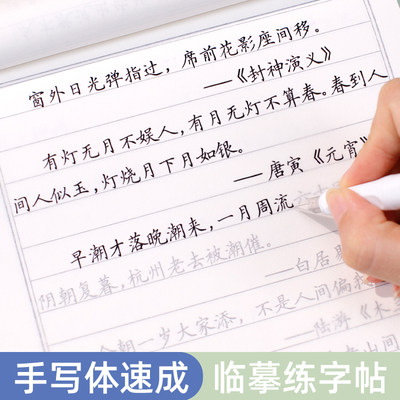 窗外日光弹指过，席前花影座间移。
——《封神演义》
有灯无月不娱人，有月无灯不算春。春到人
间人似玉，灯烧月下月如银。
——唐寅《元宵》
早潮才落晚潮来，一月周流
阴朝复暮，杭州老去被潮催。
——白居
朝一岁大家添，不是人间偏
——陆游
手写体速成 临摹练字帖